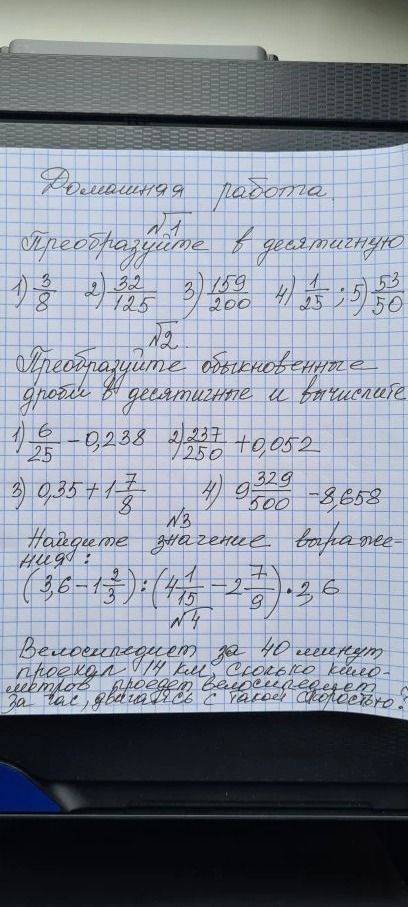 Домашняя работа.
№1
Преобразуйте в десятичную
1) 3/8 2) 32/125 3) 159/200 4) 1/25 ; 5) 53/50
№2.
Преобразуйте обыкновенные
дроби в десятичные и вычислите
1) 6/25 - 0,238 2) 237/250 + 0,052
3) 0,35 + 1 7/8 4) 9 329/500 - 8,658
№3
Найдите значение выраже-
ния:
(3,6 - 1 2/3) : (4 1/15 - 2 7/9) · 2,6
№4
Велосипедист за 40 минут
проехал 14 км, сколько кило-
метров проедет велосипедист
за час, двигаясь с такой скоростью?